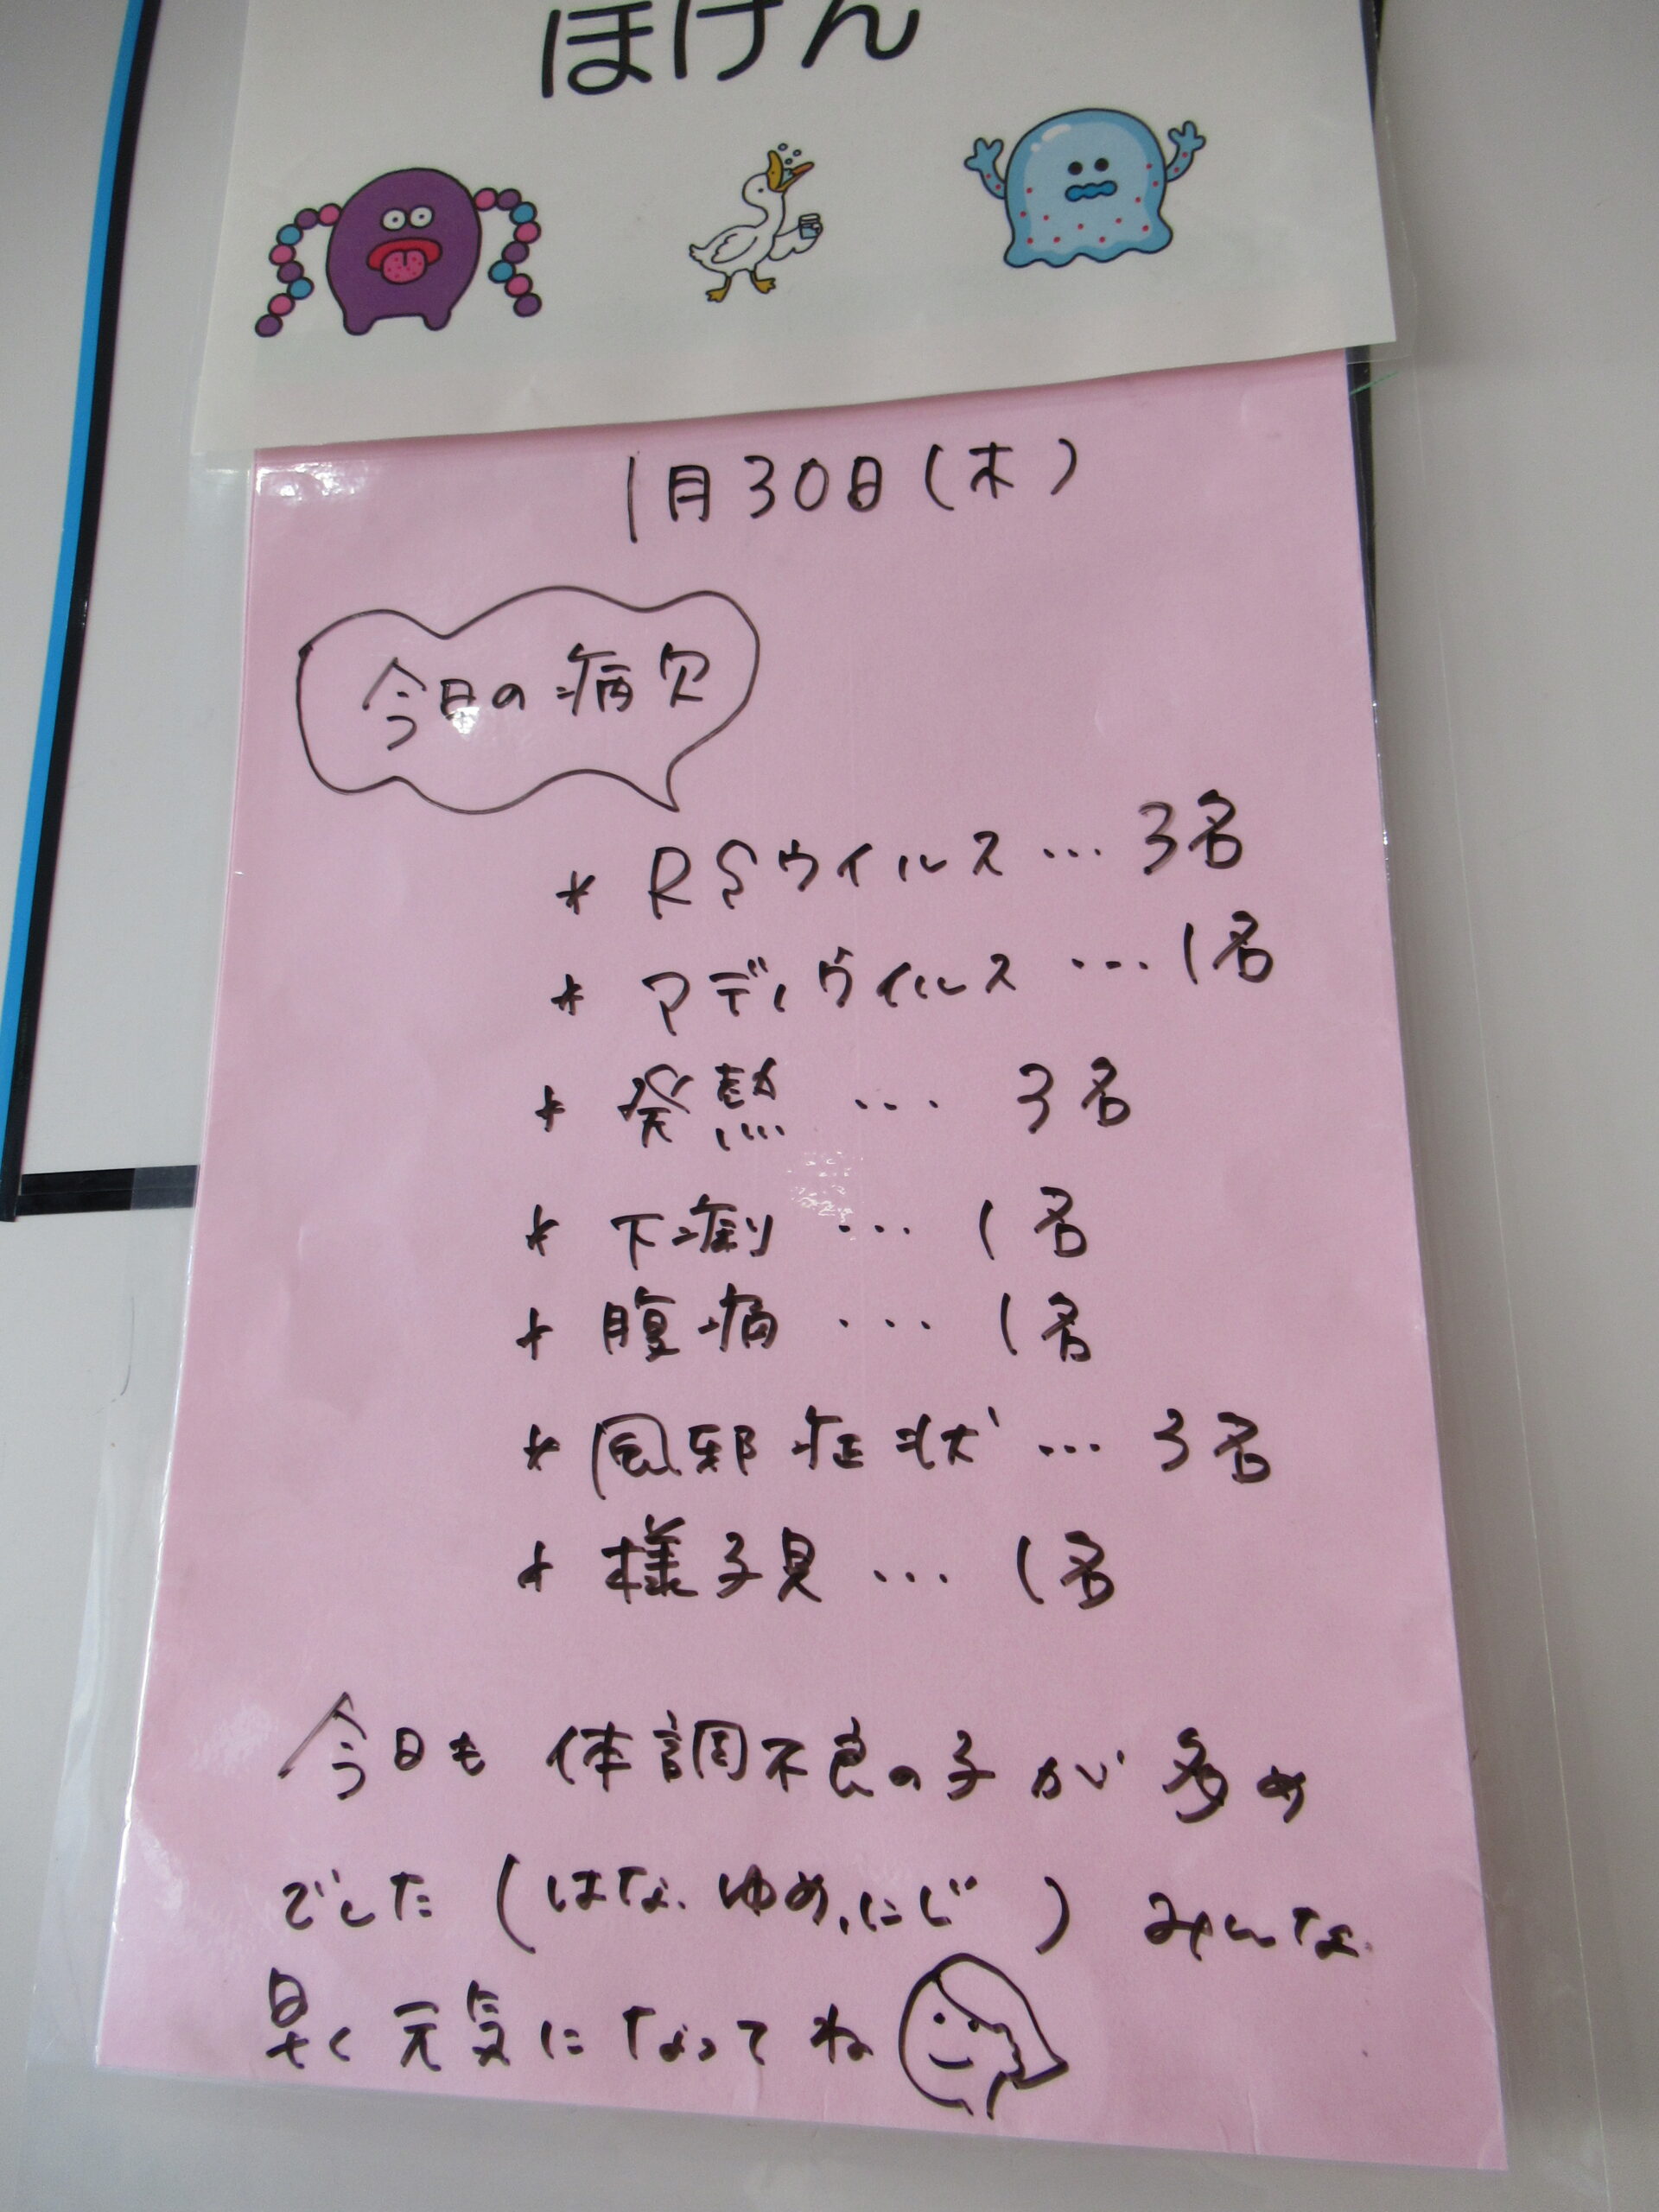 ほけん
1月30日(木)
今日の病欠
* RSウイルス … 3名
* アデノウイルス … 1名
* 発熱 … 3名
* 下痢 … 1名
* 腹痛 … 1名
* 風邪症状 … 3名
* 様子見 … 1名
今日も体調不良の子が多め
でした(はな、ゆめ、にじ)みんな
早く元気になってね